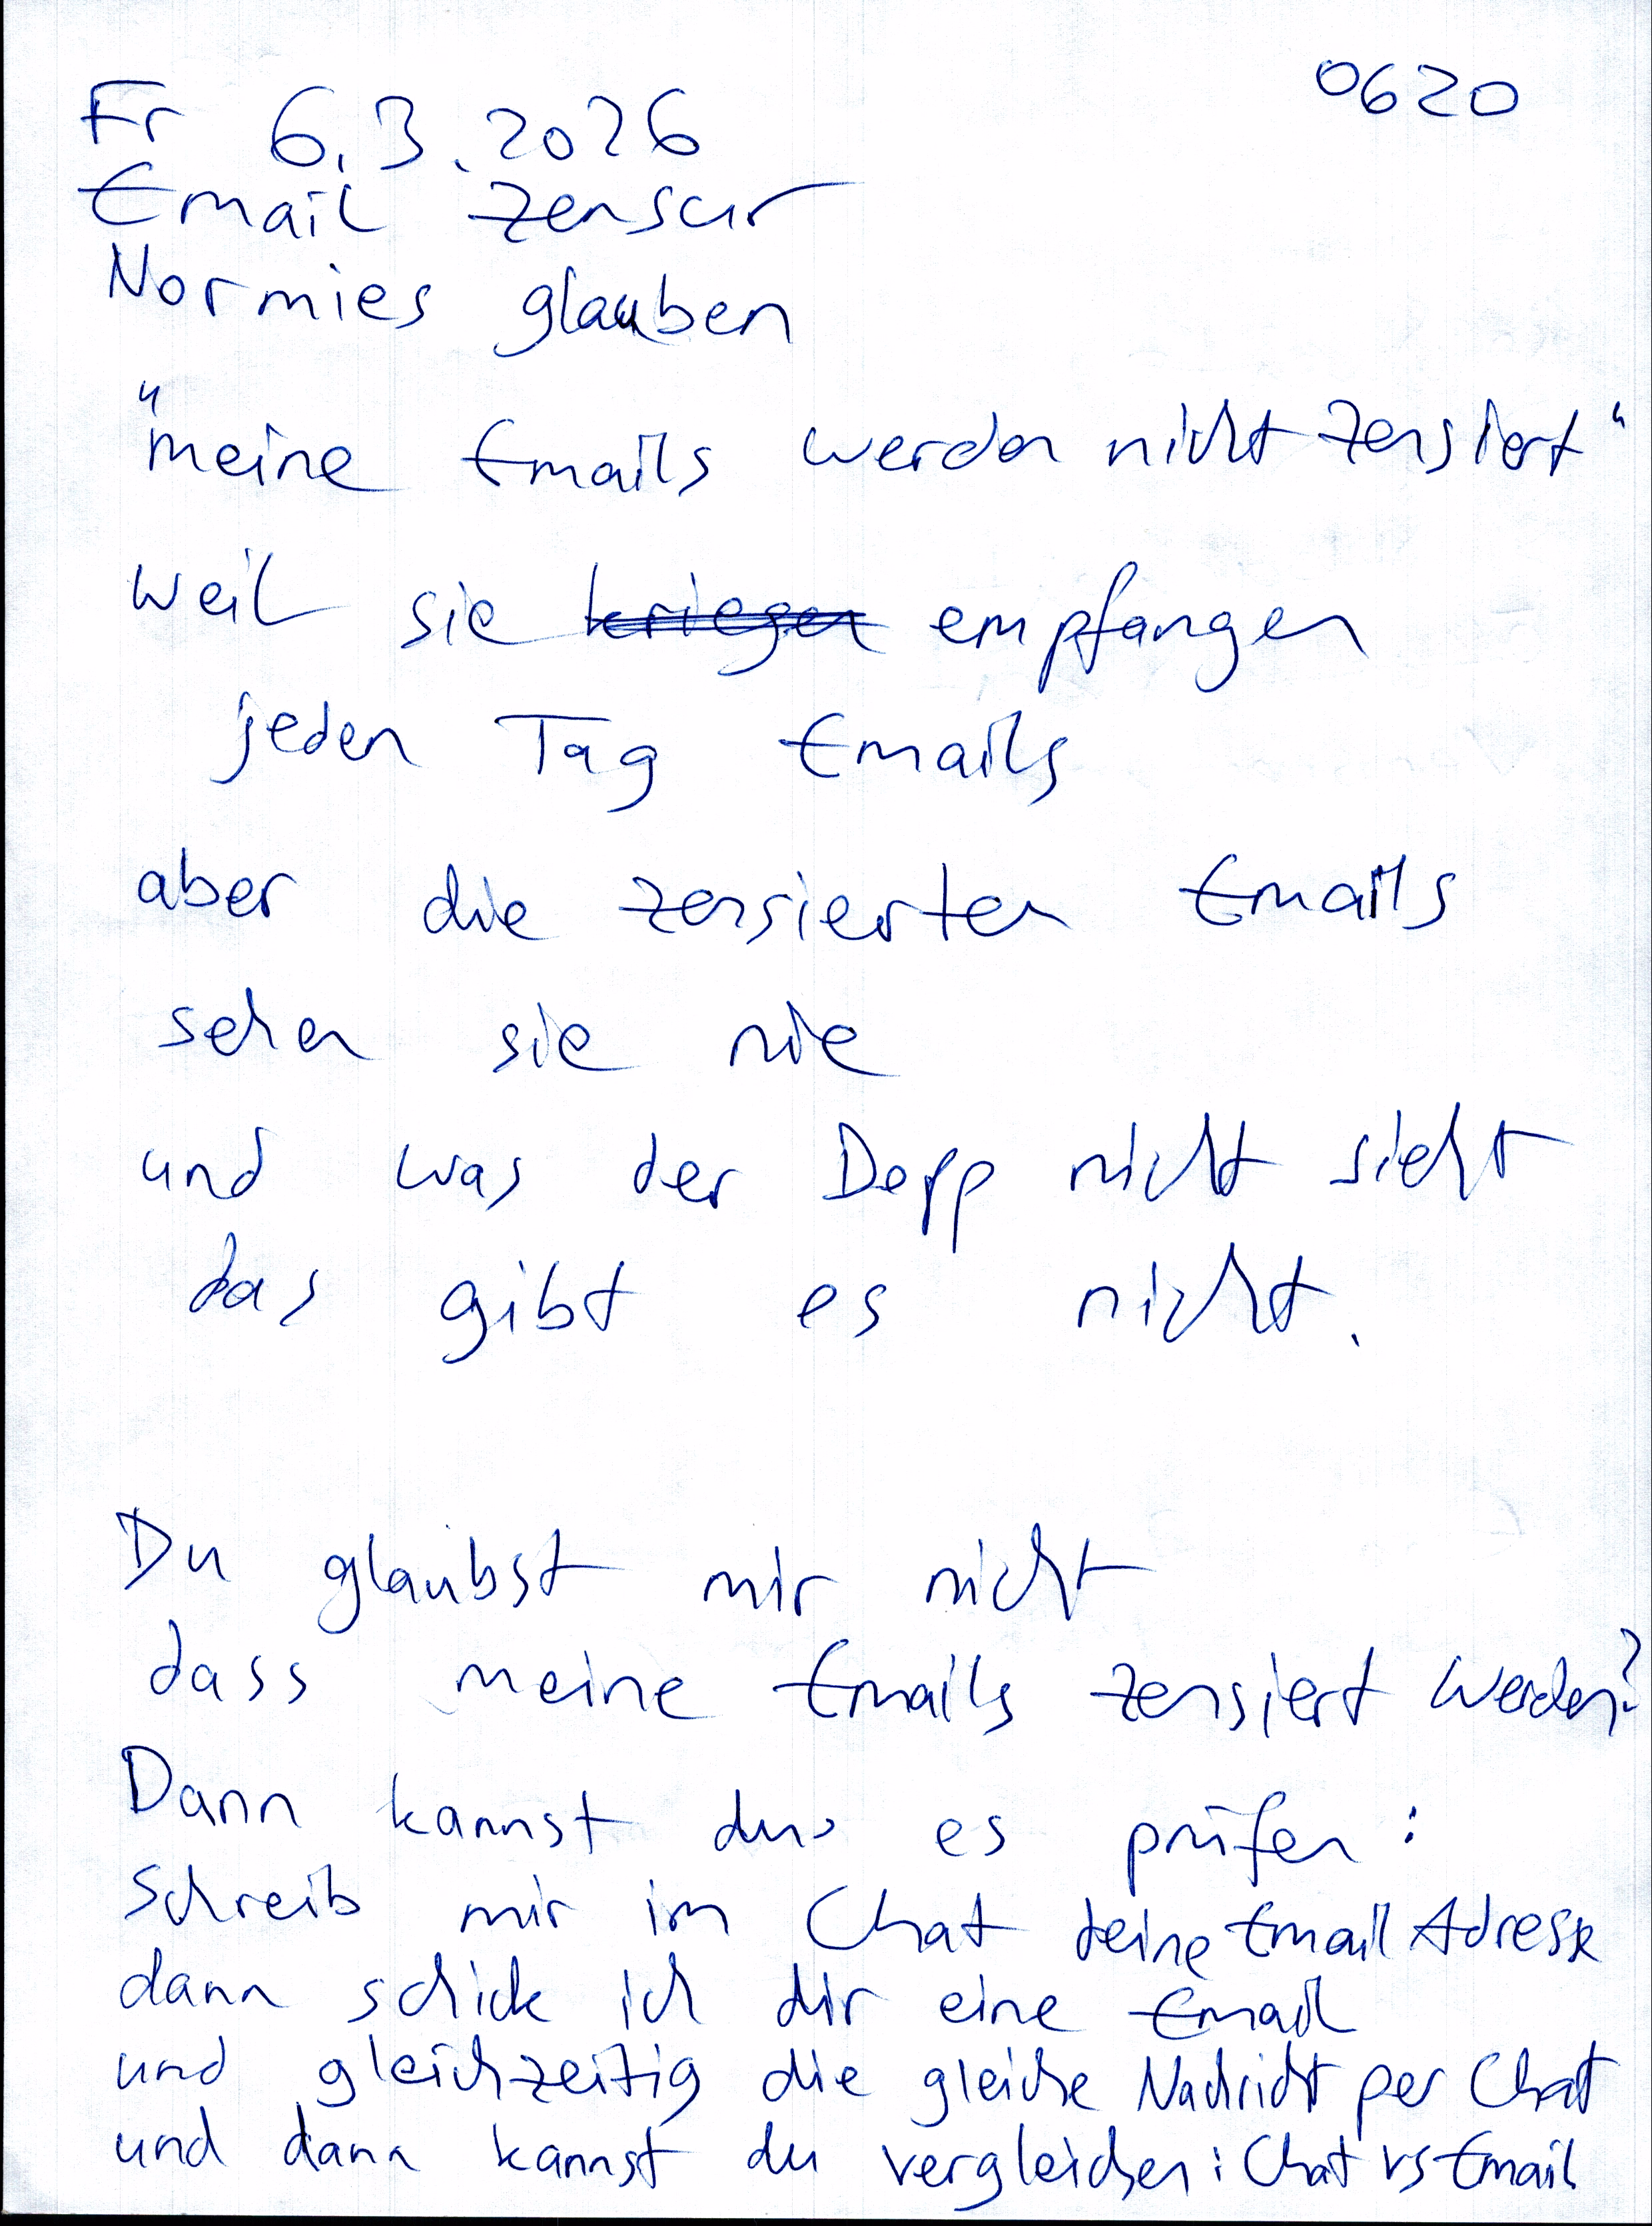 0620
Fr 6.3.2026
Email Zensur
Normies glauben
"meine Emails werden nicht zensiert"
weil sie kriegen empfangen
jeden Tag Emails
aber die zensierten Emails
sehen sie nie
und was der Depp nicht sieht
das gibt es nicht.
Du glaubst mir nicht
dass meine Emails zensiert werden?
Dann kannst du es prüfen:
Schreib mir im Chat deine Email Adresse
dann schick ich dir eine Email
und gleichzeitig die gleiche Nachricht per Chat
und dann kannst du vergleichen: Chat vs Email